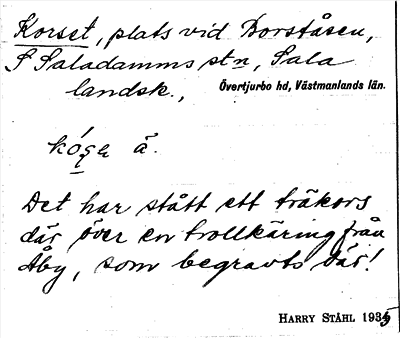 Korset, plats vid Borståsen,
S Saladamms stn, Sala
landsk., Övertjurbo hd, Västmanlands län.
å.
Det har stått ett träkors
där över en trollkäring från
Åby, som begravts där!
HARRY STÅHL 1935